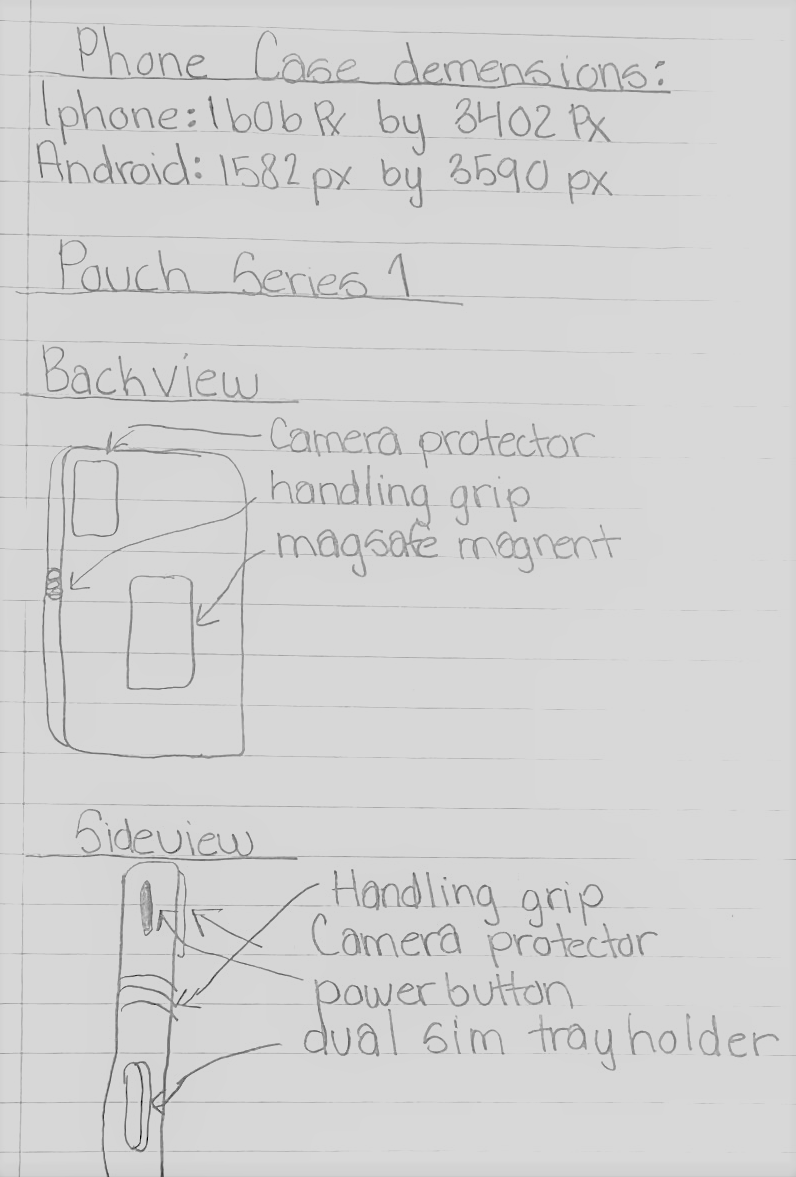 Phone Case demensions:
Iphone: 1606 Px by 3402 Px
Android: 1582 px by 3590 px
Pouch Series 1
Backview
Camera protector
handling grip
magsafe magnent
Sideview
Handling grip
Camera protector
power button
dual sim tray holder